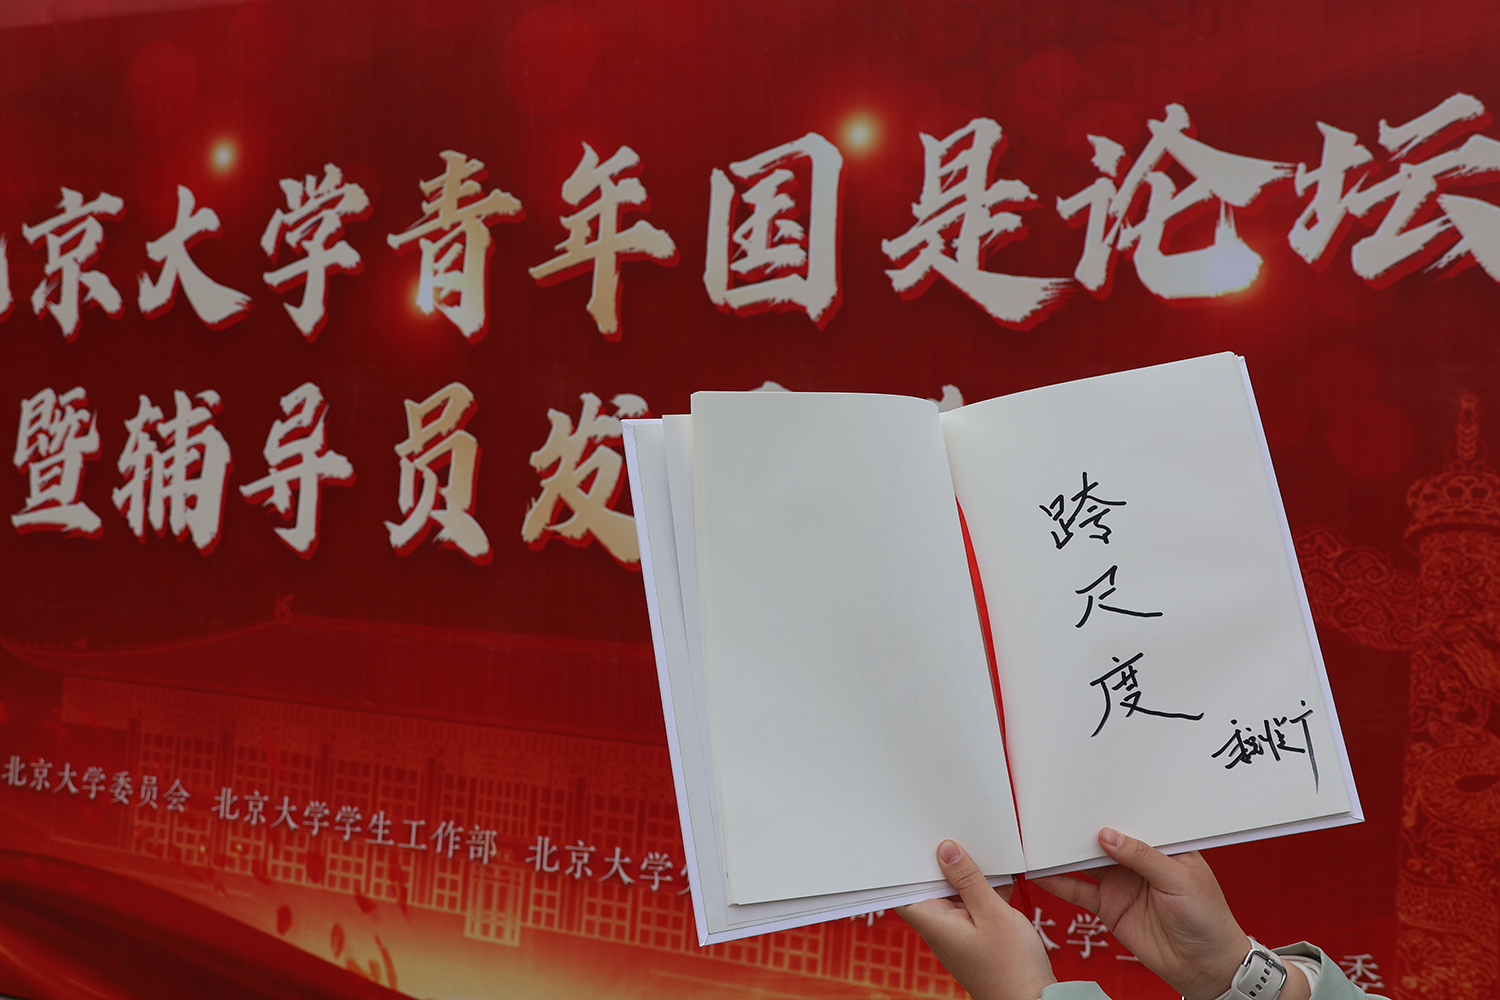 北京大学青年国是论坛
暨辅导员发
北京大学委员会 北京大学学生工作部 北京大学
大学
委
跨
尺
度